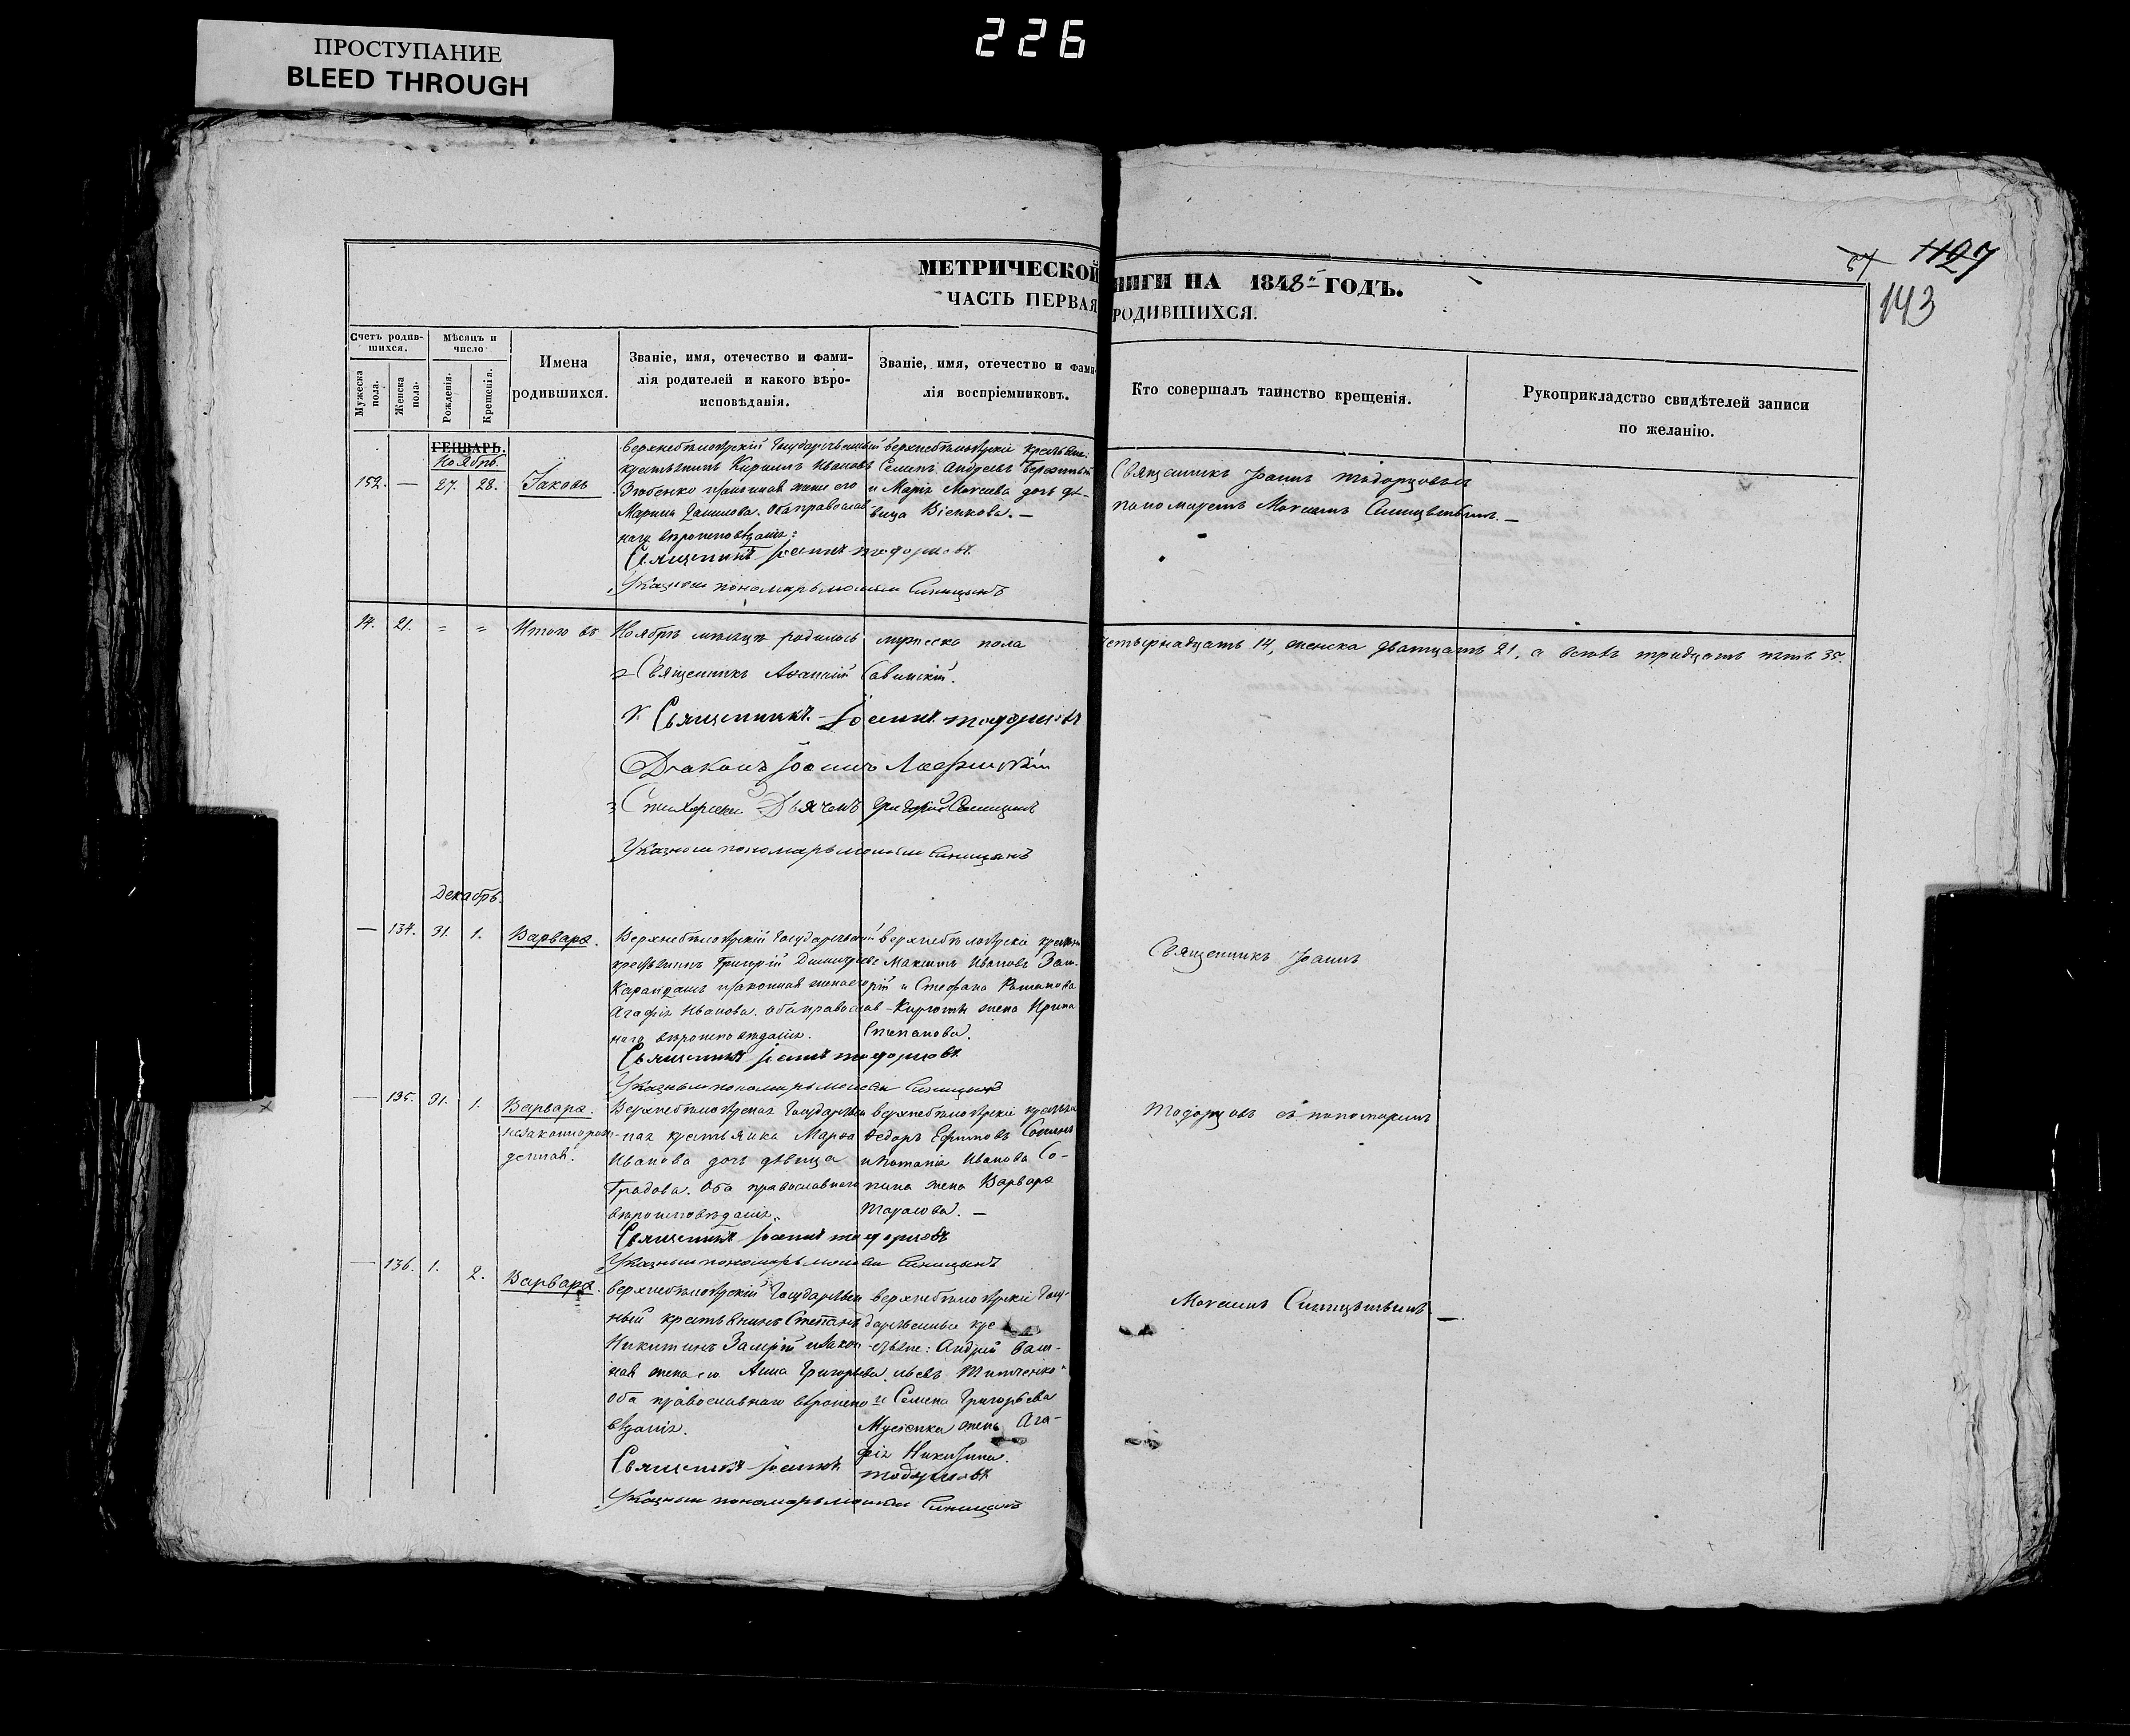 ПРОСТУПАНИЕ
BLEED THROUGH
226
1127
143
МЕТРИЧЕСКОЙ НИГИ НА 1848й ГОДЪ.
ЧАСТЬ ПЕРВАЯ РОДИВШИХСЯ.
Счетъ родив-
шихся.
Мѣсяцъ и
число
Мужеска
пола.
Женска
пола.
Рожденія.
Крещенія.
Имена
родившихся.
Званіе, имя, отечество и фами-
лія родителей и какого вѣро-
исповѣданія.
Званіе, имя, отечество и фами-
лія воспріемниковъ.
Кто совершалъ таинство крещенія.
Рукоприкладство свидѣтелей записи
по желанію.
ГЕНВАРЬ.
Ноябрь.
152. — 27. 28. Іаковъ
Верхнебѣлозѣрскій Государственный
крестьянинъ Кириллъ Ивановъ
и законная жена его
Марина Данилова. Оба православ
наго вѣроисповѣданія:
Священникъ Іоаннъ Тодорцовъ
Указный пономарь Моисей Синицынъ
Верхнебѣлозѣрскіе крестьяне:
Семенъ Андреевъ
и Марія Моисеева дочь дѣ-
вица Віенкова. —
Священникъ Іоаннъ Тодорцовъ съ
пономаремъ Моисеемъ Синицынымъ. —
14. 21. = = Итого въ Ноябрѣ мѣсяцѣ родилось мужеска пола четырнадцать 14, женска двадцать 21, а всѣхъ тридцать пять 35.
Священникъ Афанасій Савинскій.
Священникъ Іоаннъ Тодорцовъ
Діаконъ Іоаннъ
Стихарный Дьячекъ Григорій Синицынъ
Указный пономарь Моисей Синицынъ
Декабрь.
— 134. 31. 1. Варвара.
Верхнебѣлозѣрскій Государственный
крестьянинъ Григорій Димитріевъ
Карандашъ и законная жена его
Агафія Иванова. Оба православ
наго вѣроисповѣданія.
Священникъ Іоаннъ Тодорцовъ
Указный пономарь Моисей Синицынъ
Верхнебѣлозѣрскіе крестьяне
Максимъ Ивановъ Зам-
рій и Стефана Романова
жена Ирина
Степанова.
Священникъ Іоаннъ
— 135. 31. 1. Варвара.
незаконорож-
денная.
Верхнебѣлозѣрская Государствен
ная крестьянка Марѳа
Иванова дочь дѣвица
Градова. Оба православнаго
вѣроисповѣданія.
Священникъ Іоаннъ Тодорцовъ
Указный пономарь Моисей Синицынъ
Верхнебѣлозѣрскіе крестьяне
Ѳедоръ Ефимовъ
Иванова Со-
пина жена Варвара
Тарасова. —
Тодорцовъ съ пономаремъ
— 136. 1. 2. Варвара.
Верхнебѣлозѣрскій Государствен
ный крестьянинъ Степанъ
Никитинъ Замрій и закон
ная жена его Анна Григорьева.
Оба православнаго вѣроиспо
вѣданія.
Священникъ Іоаннъ Тодорцовъ
Указный пономарь Моисей Синицынъ
Верхнебѣлозѣрскіе Госу-
дарственные кре
стьяне: Андрей Васи-
льевъ Титченко
и Семена Григорьева
Мусіенка жена Ага-
фія Никитина.
Моисеемъ Синицынымъ. —